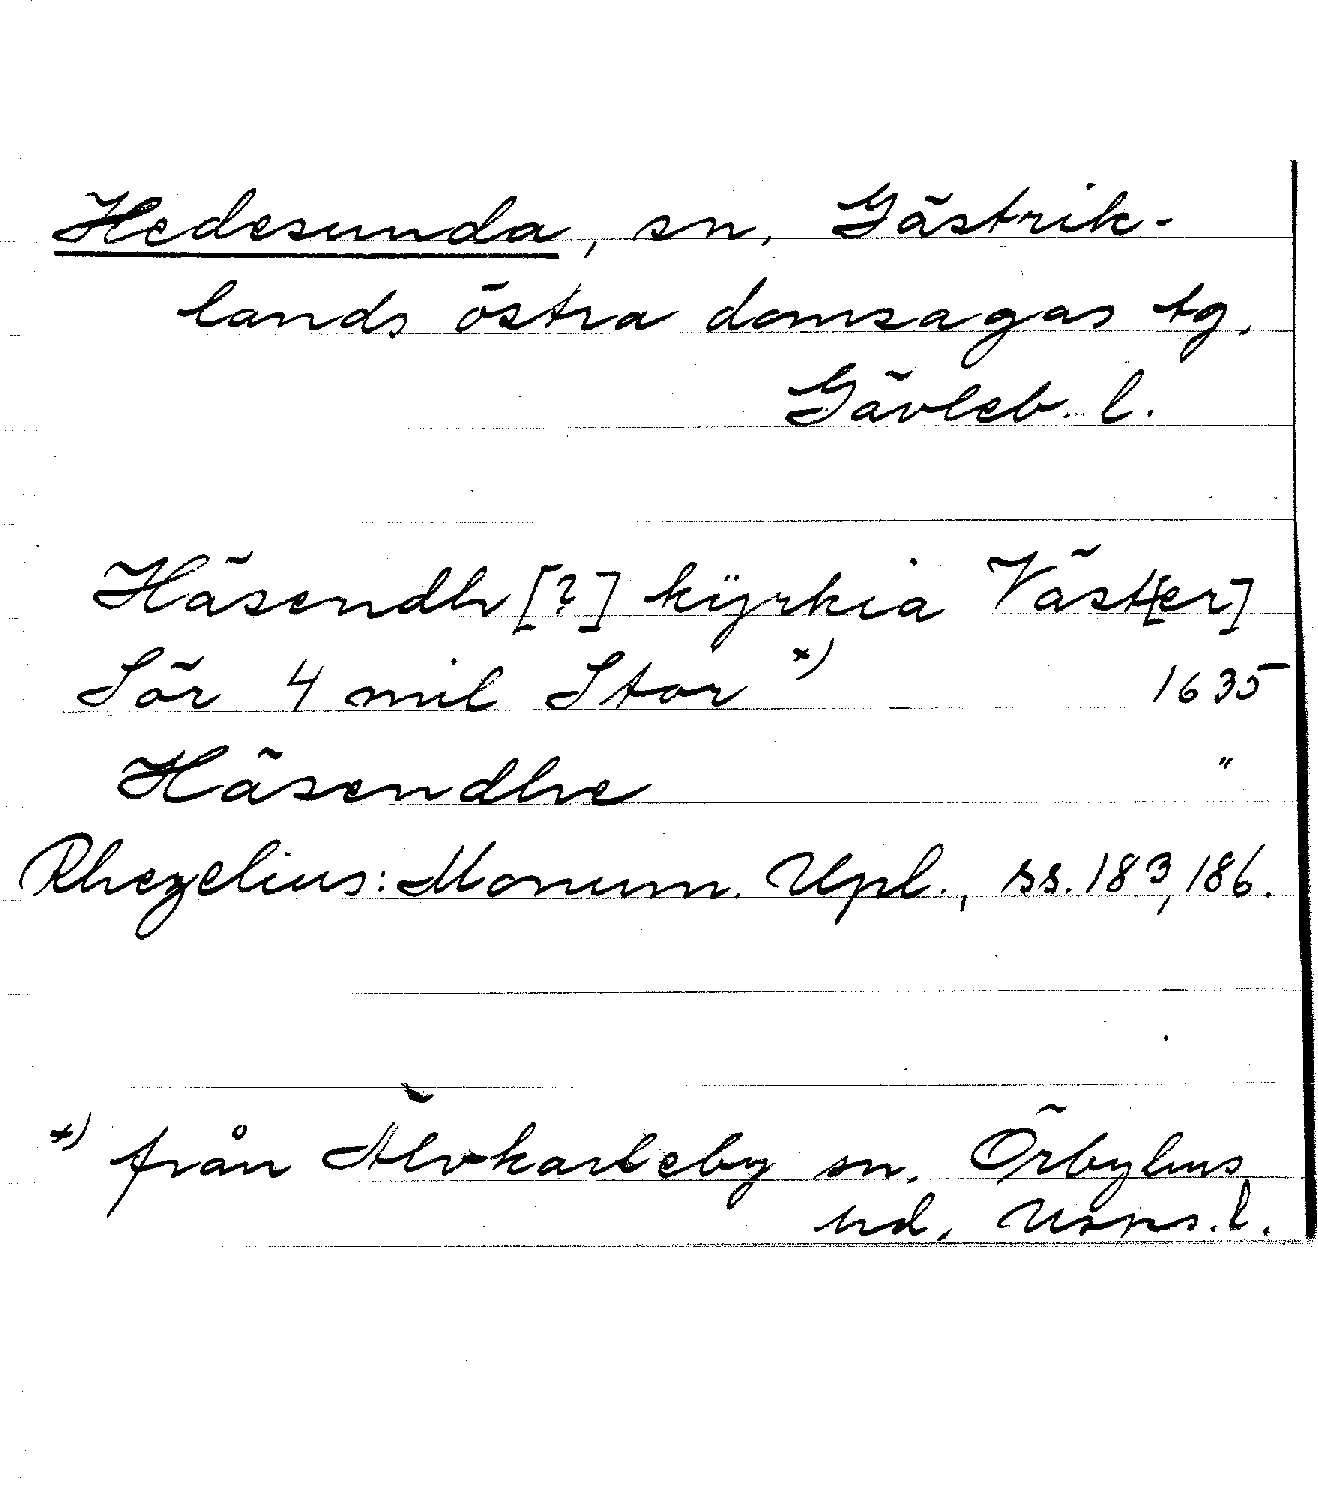 Hedesunda, sn, Gästrik-
lands östra domsagas tg,
Gävleb. l.
Häsendh [?] kÿrkia Väst[er]
Sör 4 mil Stor *) 1635
Häsendhe "
Rhezelius: Monum. Upl., ss. 183, 186.
*) från Älvkarleby sn, Örbyhus
hd, Upps. l.